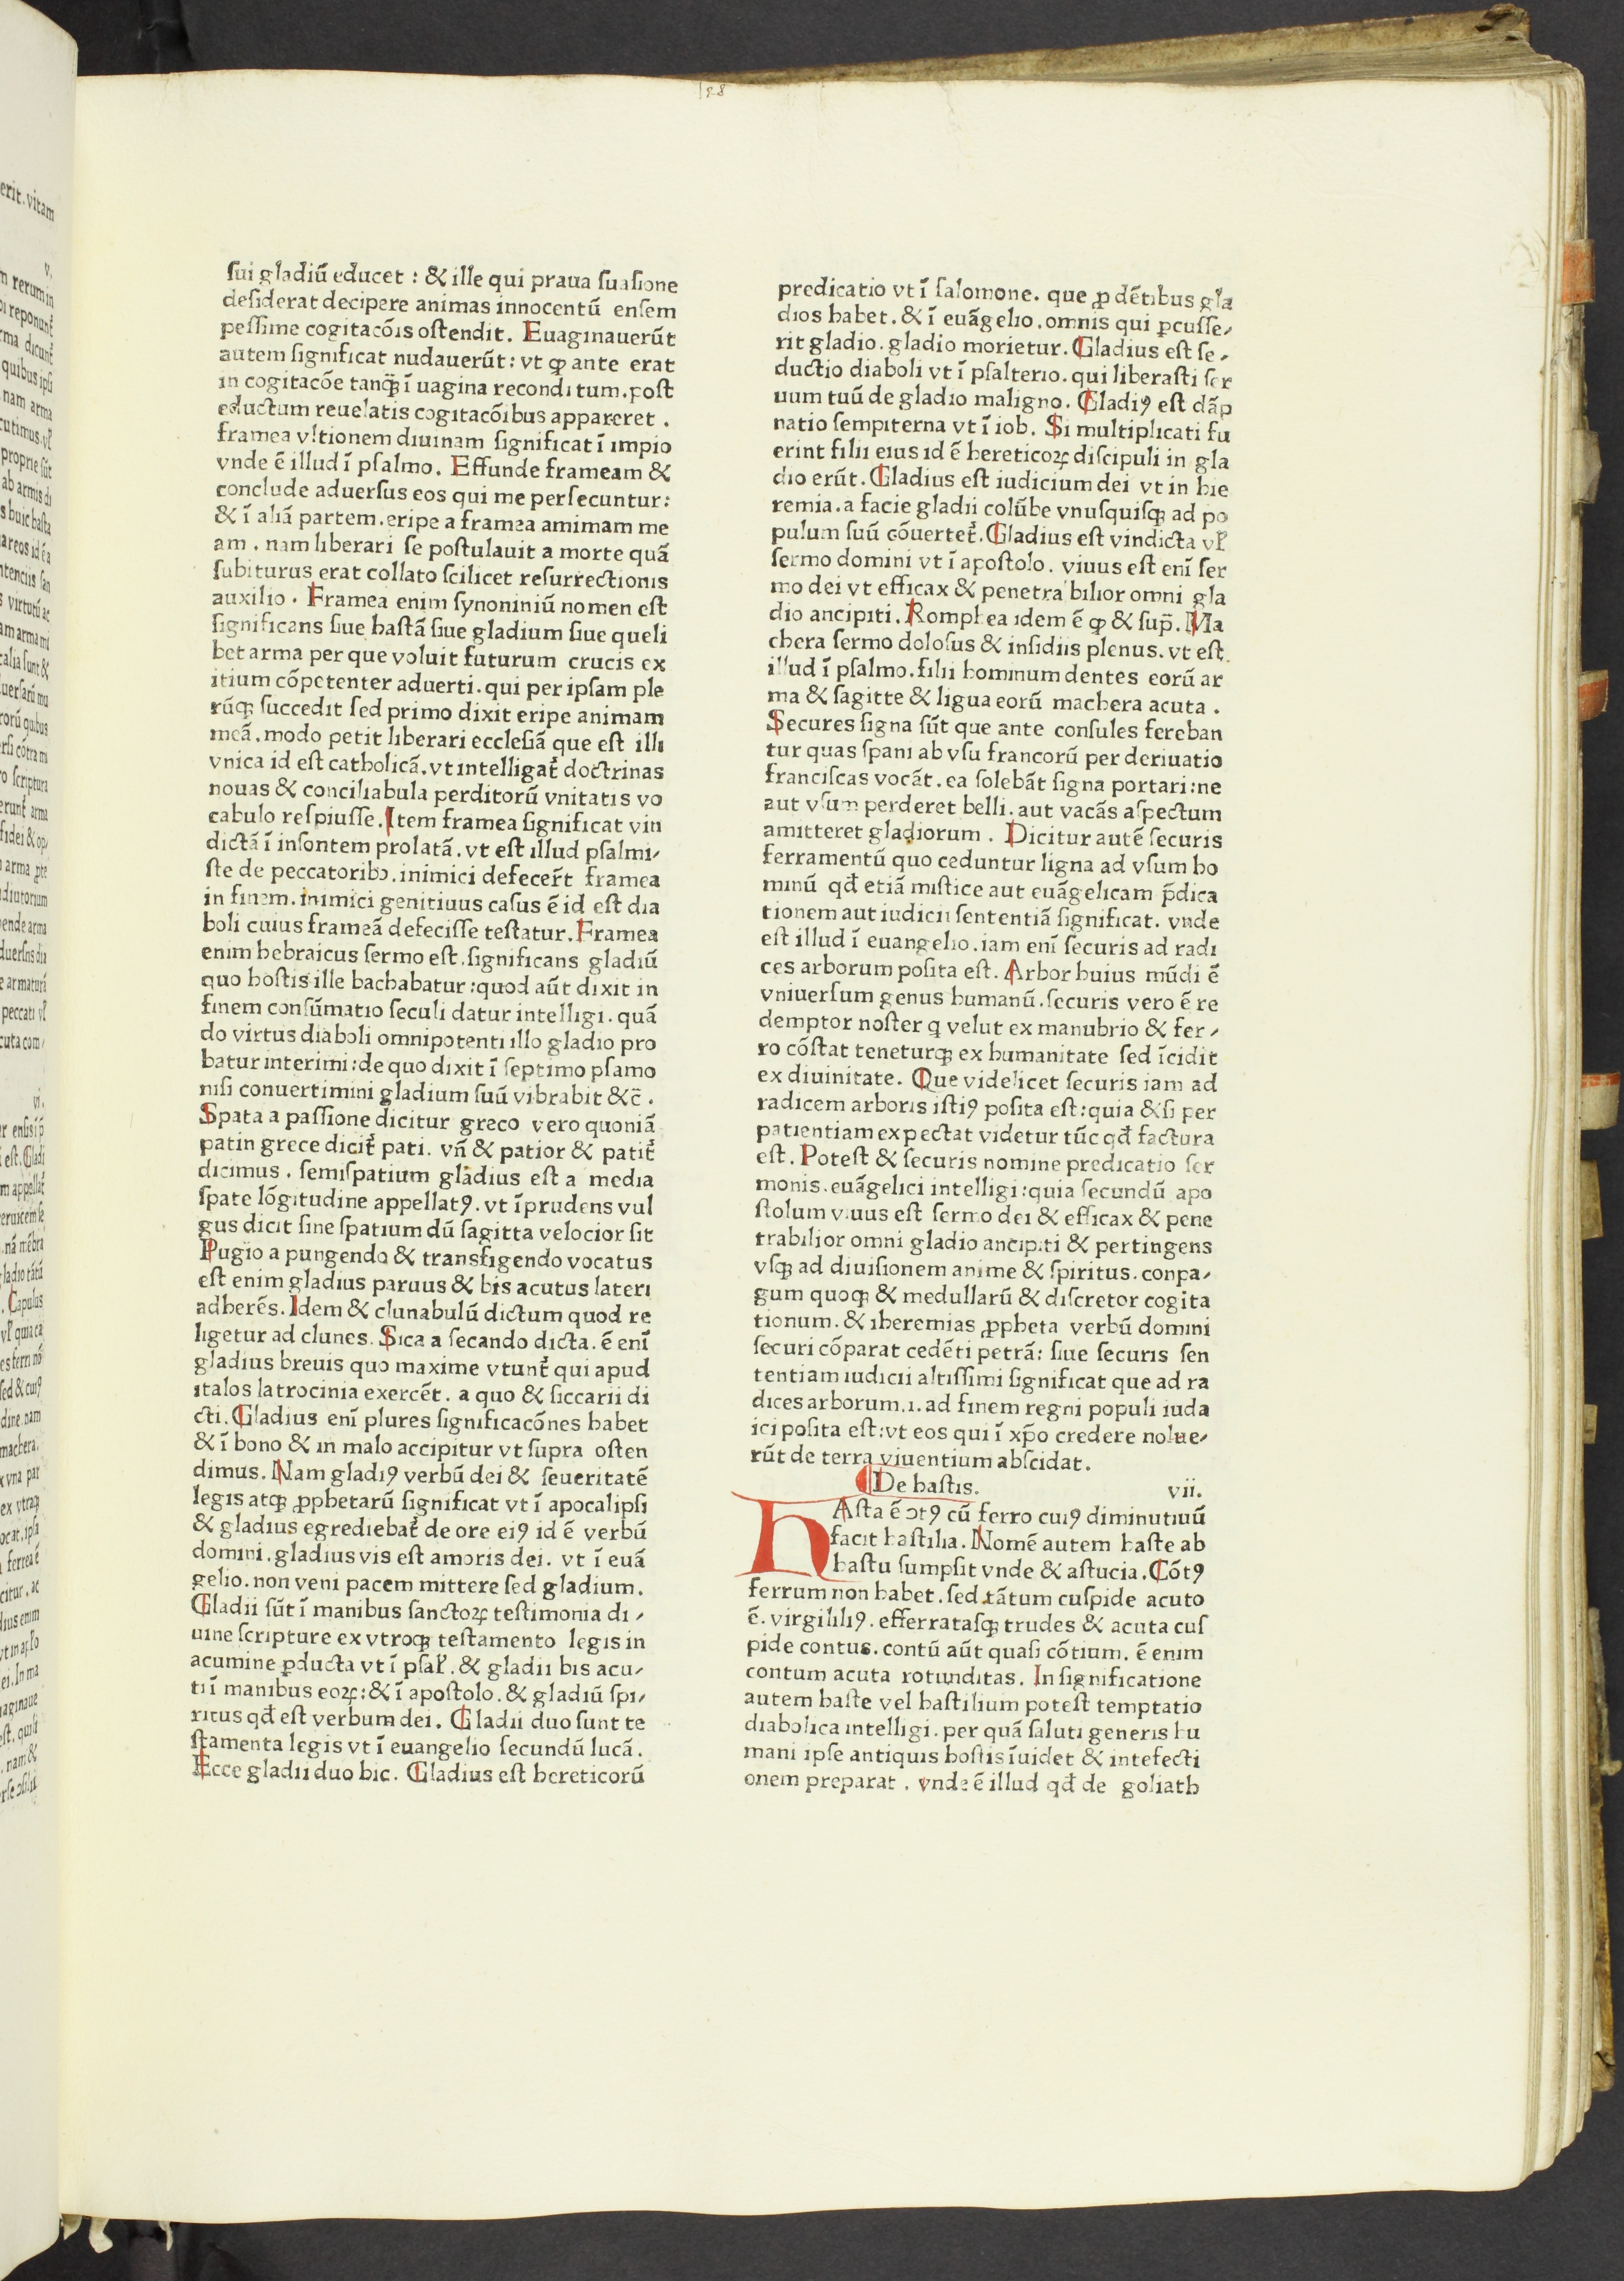 128
sui gladiū educet : & ille qui praua suasione
desiderat decipere animas innocentū ensem
pessime cogitacōis ostendit. Euaginauerūt
autem significat nudauerūt: vt ꝙ ante erat
in cogitacōe tanq̄ȝ ī uagina reconditum. post
eductum reuelatis cogitacōibus appareret .
framea vltionem diuinam significat ī impio
vnde ē illud ī psalmo. Effunde frameam &
conclude aduersus eos qui me persecuntur:
& ī aliā partem. eripe a framea amimam me
am . nam liberari se postulauit a morte quā
subiturus erat collato scilicet resurrectionis
auxilio . Framea enim synoniniū nomen est
significans siue hastā siue gladium siue queli
bet arma per que voluit futurum crucis ex
itium cōpetenter aduerti. qui per ipsam ple
rūqȝ succedit sed primo dixit eripe animam
meā. modo petit liberari ecclesiā que est illi
vnica id est catholicā. vt intelligat᷑ doctrinas
nouas & conciliabula perditorū vnitatis vo
cabulo respiusse. Item framea significat vin
dictā ī insontem prolatā. vt est illud psalmi⸗
ste de peccatoribꝫ. inimici defecer̄t framea
in finem. inimici genitiuus casus ē id est dia
boli cuius frameā defecisse testatur. Framea
enim hebraicus sermo est. significans gladiū
quo hostis ille bachabatur: quod aūt dixit in
finem consūmatio seculi datur intelligi. quā
do virtus diaboli omnipotenti illo gladio pro
batur interimi: de quo dixit ī septimo psamo
nisi conuertimini gladium suū vibrabit &c̄ .
Spata a passione dicitur greco vero quoniā
patin grece dicit᷑ pati. vn̄ & patior & patit᷑
dicimus . semispatium gladius est a media
spate lōgitudine appellatꝰ. vt īprudens vul
gus dicit sine spatium dū sagitta velocior sit
Pugio a pungendo & transfigendo vocatus
est enim gladius paruus & bis acutus lateri
adherēs. Idem & clunabulū dictum quod re
ligetur ad clunes. Sica a secando dicta. ē enī
gladius breuis quo maxime vtunt᷑ qui apud
italos latrocinia exercēt. a quo & siccarii di
cti. Gladius enī plures significacōnes habet
& ī bono & in malo accipitur vt supra osten
dimus. Nam gladiꝰ verbū dei & seueritatē
legis atqȝ ꝓphetarū significat vt ī apocalipsi
& gladius egrediebat᷑ de ore eiꝰ id ē verbū
domini. gladius vis est amoris dei. vt ī euā
gelio. non veni pacem mittere sed gladium.
Gladii sūt ī manibus sanctoꝝ testimonia di⸗
uine scripture ex vtroqȝ testamento legis in
acumine ꝓducta vt ī psal᷑. & gladii bis acu⸗
ti ī manibus eoꝝ: & ī apostolo. & gladiū spi⸗
ritus qđ est verbum dei. Gladii duo sunt te
stamenta legis vt ī euangelio secundū lucā.
Ecce gladii duo hic. Gladius est hereticorū
predicatio vt ī salomone. que ꝓ dētibus gla
dios habet. & ī euāgelio. omnis qui ꝑcusse⸗
rit gladio. gladio morietur. Gladius est se⸗
ductio diaboli vt ī psalterio. qui liberasti ser
uum tuū de gladio maligno. Gladiꝰ est dāp
natio sempiterna vt ī iob. Si multiplicati fu
erint filii eius id ē hereticoꝝ discipuli in gla
dio erūt. Gladius est iudicium dei vt in hie
remia. a facie gladii colūbe vnusquisqȝ ad po
pulum suū cōuertet᷑. Gladius est vindicta vl᷑
sermo domini vt ī apostolo. viuus est enī ser
mo dei vt efficax & penetrabilior omni gla
dio ancipiti. Romphea idem ē ꝙ & sup̄. Ma
chera sermo dolosus & insidiis plenus. vt est
illud ī psalmo. filii hominum dentes eorū ar
ma & sagitte & ligua eorū machera acuta .
Secures signa sūt que ante consules fereban
tur quas spani ab vsu francorū per deriuatio
franciscas vocāt. ea solebāt signa portari: ne
aut vsum perderet belli. aut vacās aspectum
amitteret gladiorum . Dicitur autē securis
ferramentū quo ceduntur ligna ad vsum ho
minū qđ etiā mistice aut euāgelicam p̄dica
tionem aut iudicii sententiā significat. vnde
est illud ī euangelio. iam enī securis ad radi
ces arborum posita est. Arbor huius mūdi ē
vniuersum genus humanū. securis vero ē re
demptor noster q velut ex manubrio & fer⸗
ro cōstat teneturqȝ ex humanitate sed īcidit
ex diuinitate. Que videlicet securis iam ad
radicem arboris istiꝰ posita est: quia & si per
patientiam expectat videtur tūc qđ factura
est. Potest & securis nomine predicatio ser
monis. euāgelici intelligi: quia secundū apo
stolum viuus est sermo dei & efficax & pene
trabilior omni gladio ancipiti & pertingens
vsqȝ ad diuisionem anime & spiritus. conpa⸗
gum quoqȝ & medullarū & discretor cogita
tionum. & iheremias ꝓpheta verbū domini
securi cōparat cedēti petrā: siue securis sen
tentiam iudicii altissimi significat que ad ra
dices arborum. i. ad finem regni populi iuda
ici posita est: vt eos qui ī xp̄o credere nolue⸗
rūt de terra viuentium abscidat.
¶De hastis. vii.
HAsta ē ɔtꝰ cū ferro cuiꝰ diminutiuū
facit hastilia. Nomē autem haste ab
hastu sumpsit vnde & astucia. Cōtꝰ
ferrum non habet. sed tātum cuspide acuto
ē. virgililiꝰ. efferratasqȝ trudes & acuta cus
pide contus. contū aūt quasi cōtium. ē enim
contum acuta rotunditas. In significatione
autem haste vel hastilium potest temptatio
diabolica intelligi. per quā saluti generis hu
mani ipse antiquis hostis īuidet & intefecti
onem preparat . vnde ē illud qđ de goliath